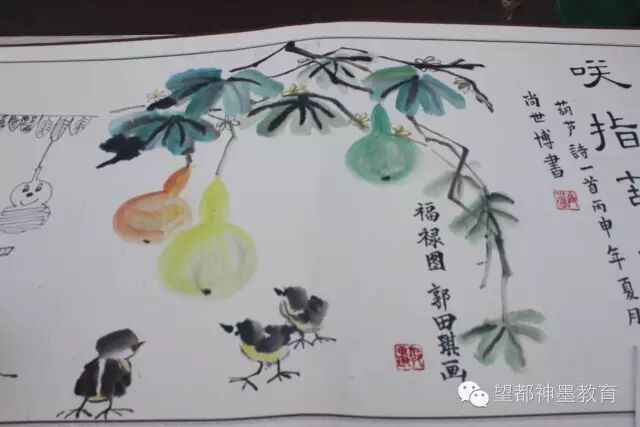 咲指
葫芦詩一首丙申年夏月
尚世博書
福禄图 郭田琪画
望都神墨教育